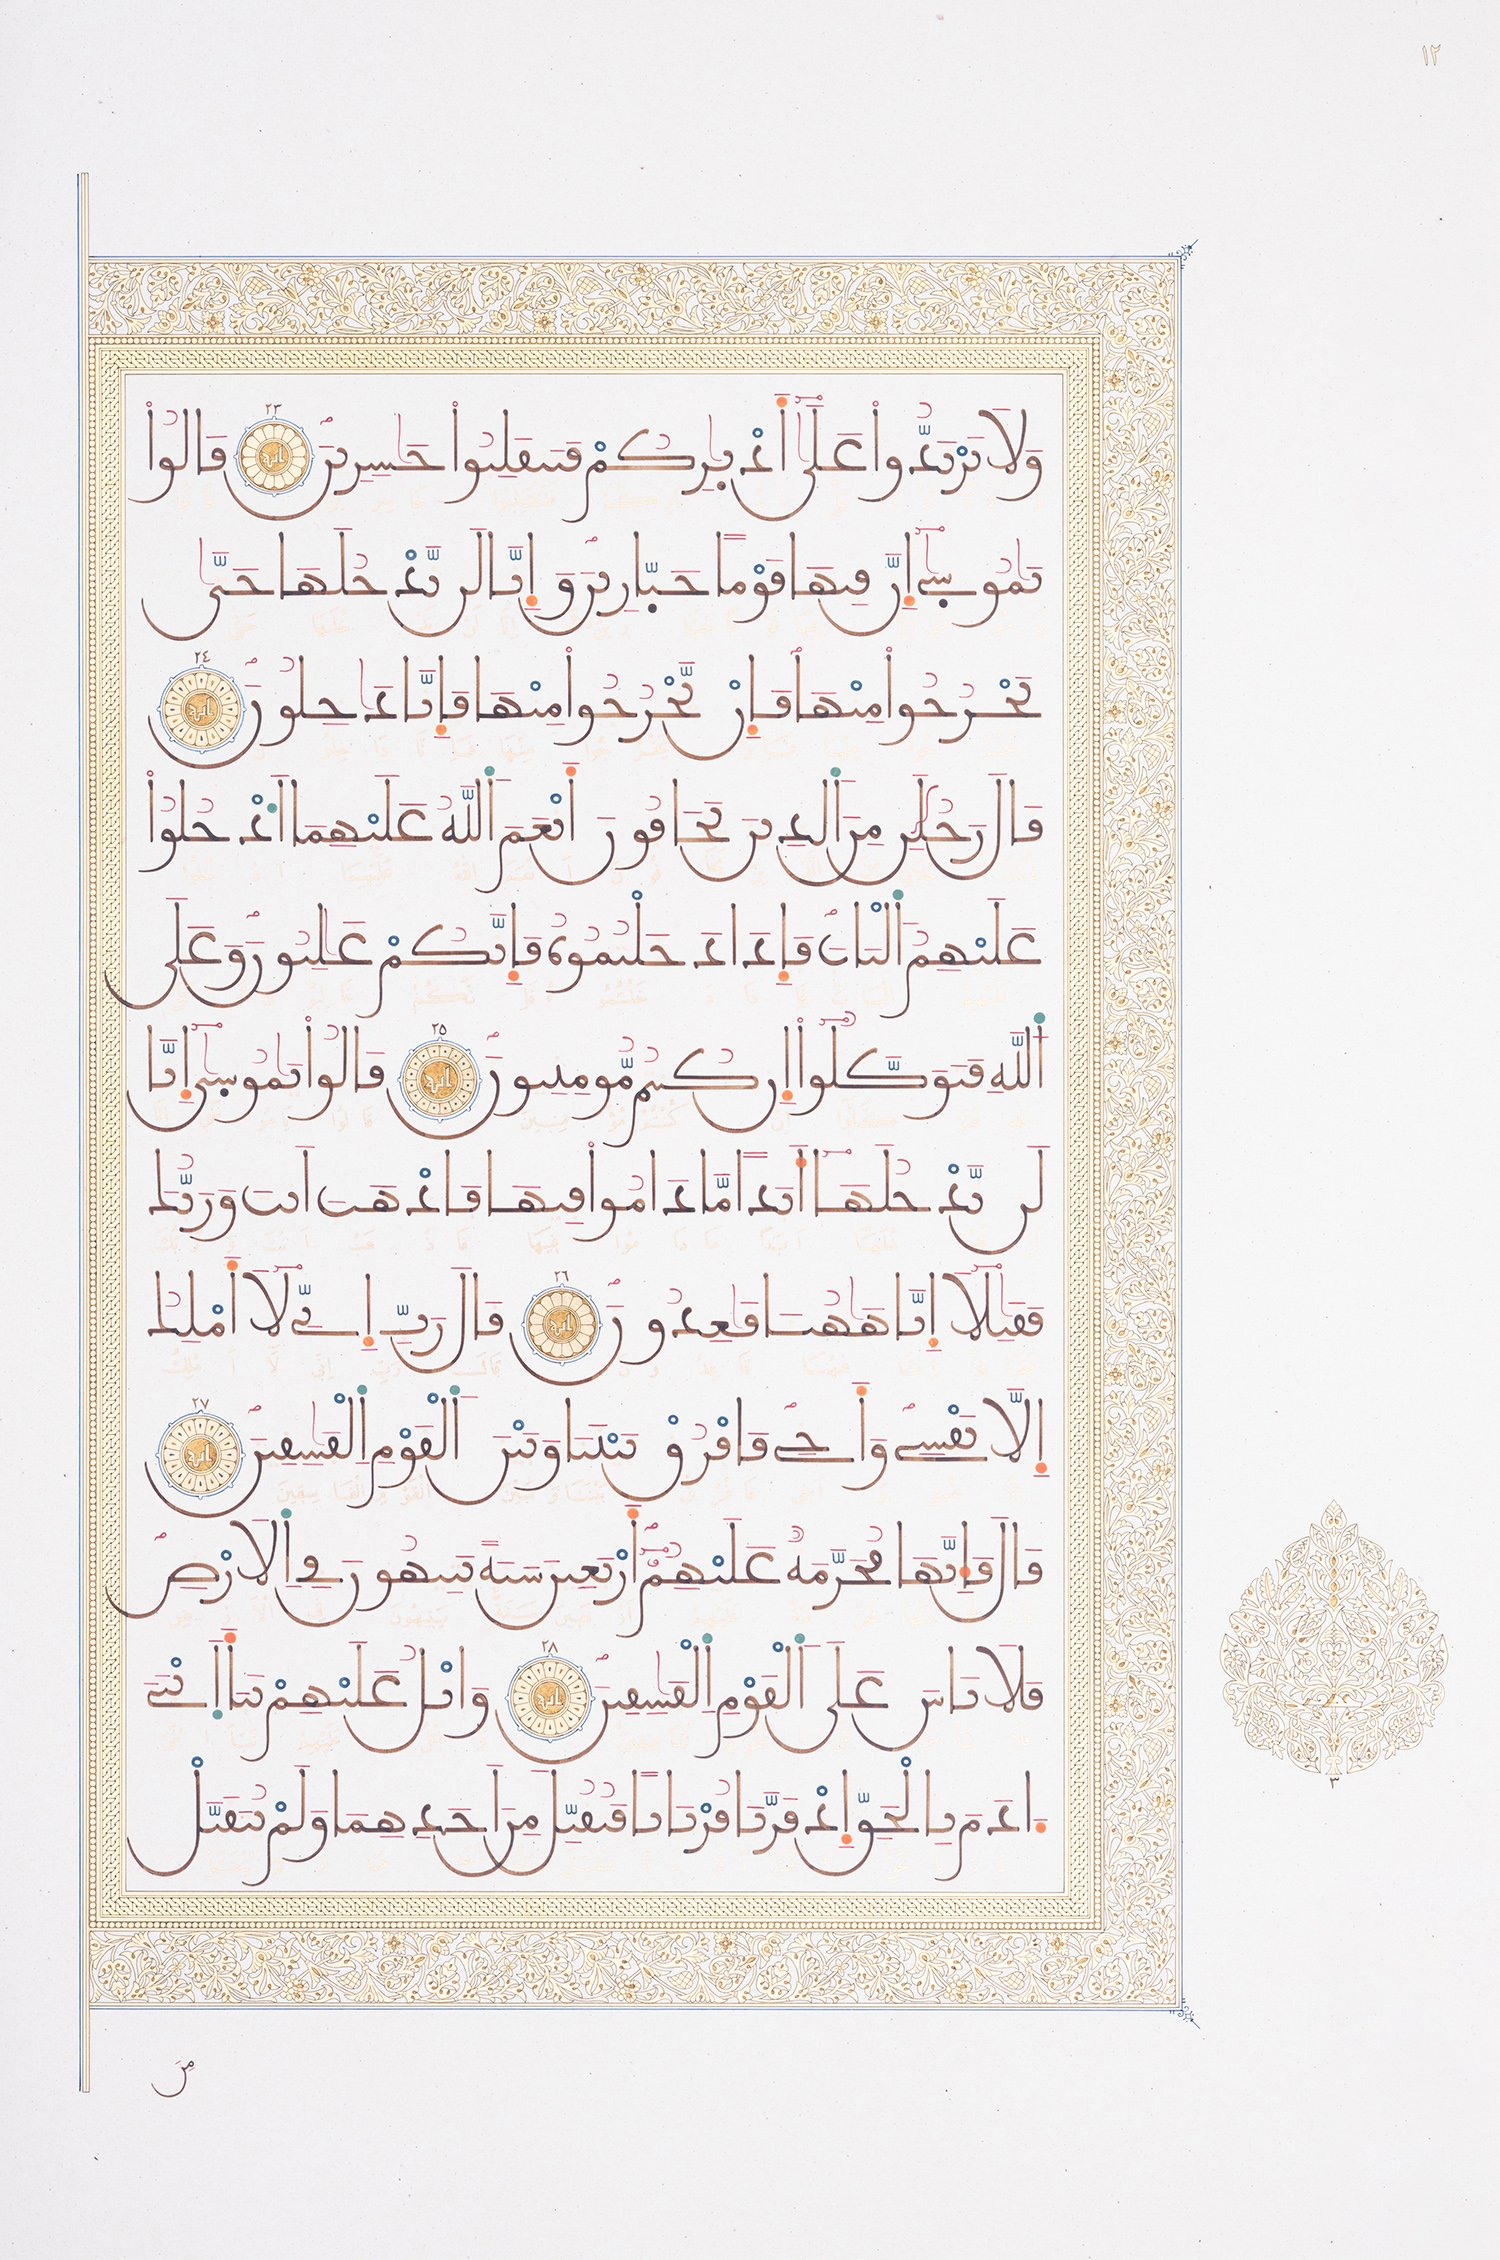 ١٢
وَلَا تَرْتَدُّوا۟ عَلَىٰٓ أَدْبَٰرِكُمْ فَتَنقَلِبُوا۟ خَٰسِرِينَ ٢٣ قَالُوا۟
يَٰمُوسَىٰٓ إِنَّ فِيهَا قَوْمًا جَبَّارِينَ وَإِنَّا لَن نَّدْخُلَهَا حَتَّىٰ
يَخْرُجُوا۟ مِنْهَا فَإِنْ يَّخْرُجُوا۟ مِنْهَا فَإِنَّا دَٰخِلُونَ ٢٤
قَالَ رَجُلَٰنِ مِنَ الَّذِينَ يَخَافُونَ أَنْعَمَ اللَّهُ عَلَيْهِمَا ادْخُلُوا۟
عَلَيْهِمُ الْبَابَ فَإِذَا دَخَلْتُمُوهُ فَإِنَّكُمْ غَٰلِبُونَ وَعَلَى
اللَّهِ فَتَوَكَّلُوٓا۟ إِن كُنتُم مُّومِنِينَ ٢٥ قَالُوا۟ يَٰمُوسَىٰٓ إِنَّا
لَن نَّدْخُلَهَآ أَبَدًا مَّا دَامُوا۟ فِيهَا فَاذْهَبَ اَنتَ وَرَبُّكَ
فَقَٰتِلَآ إِنَّا هَٰهُنَا قَٰعِدُونَ ٢٦ قَالَ رَبِّ إِنِّي لَآ أَمْلِكُ
إِلَّا نَفْسِي وَأَخِي فَافْرُقْ بَيْنَنَا وَبَيْنَ الْقَوْمِ الْفَٰسِقِينَ ٢٧
قَالَ فَإِنَّهَا مُحَرَّمَةٌ عَلَيْهِمُۥٓ أَرْبَعِينَ سَنَةً يَتِيهُونَ فِي الَارْضِ
فَلَا تَاسَ عَلَى الْقَوْمِ الْفَٰسِقِينَ ٢٨ وَاتْلُ عَلَيْهِمْ نَبَأَ ابْنَيَ
ءَادَمَ بِالْحَقِّ إِذْ قَرَّبَا قُرْبَانًا فَتُقُبِّلَ مِنَ اَحَدِهِمَا وَلَمْ يُتَقَبَّلْ
٣
مِنَ